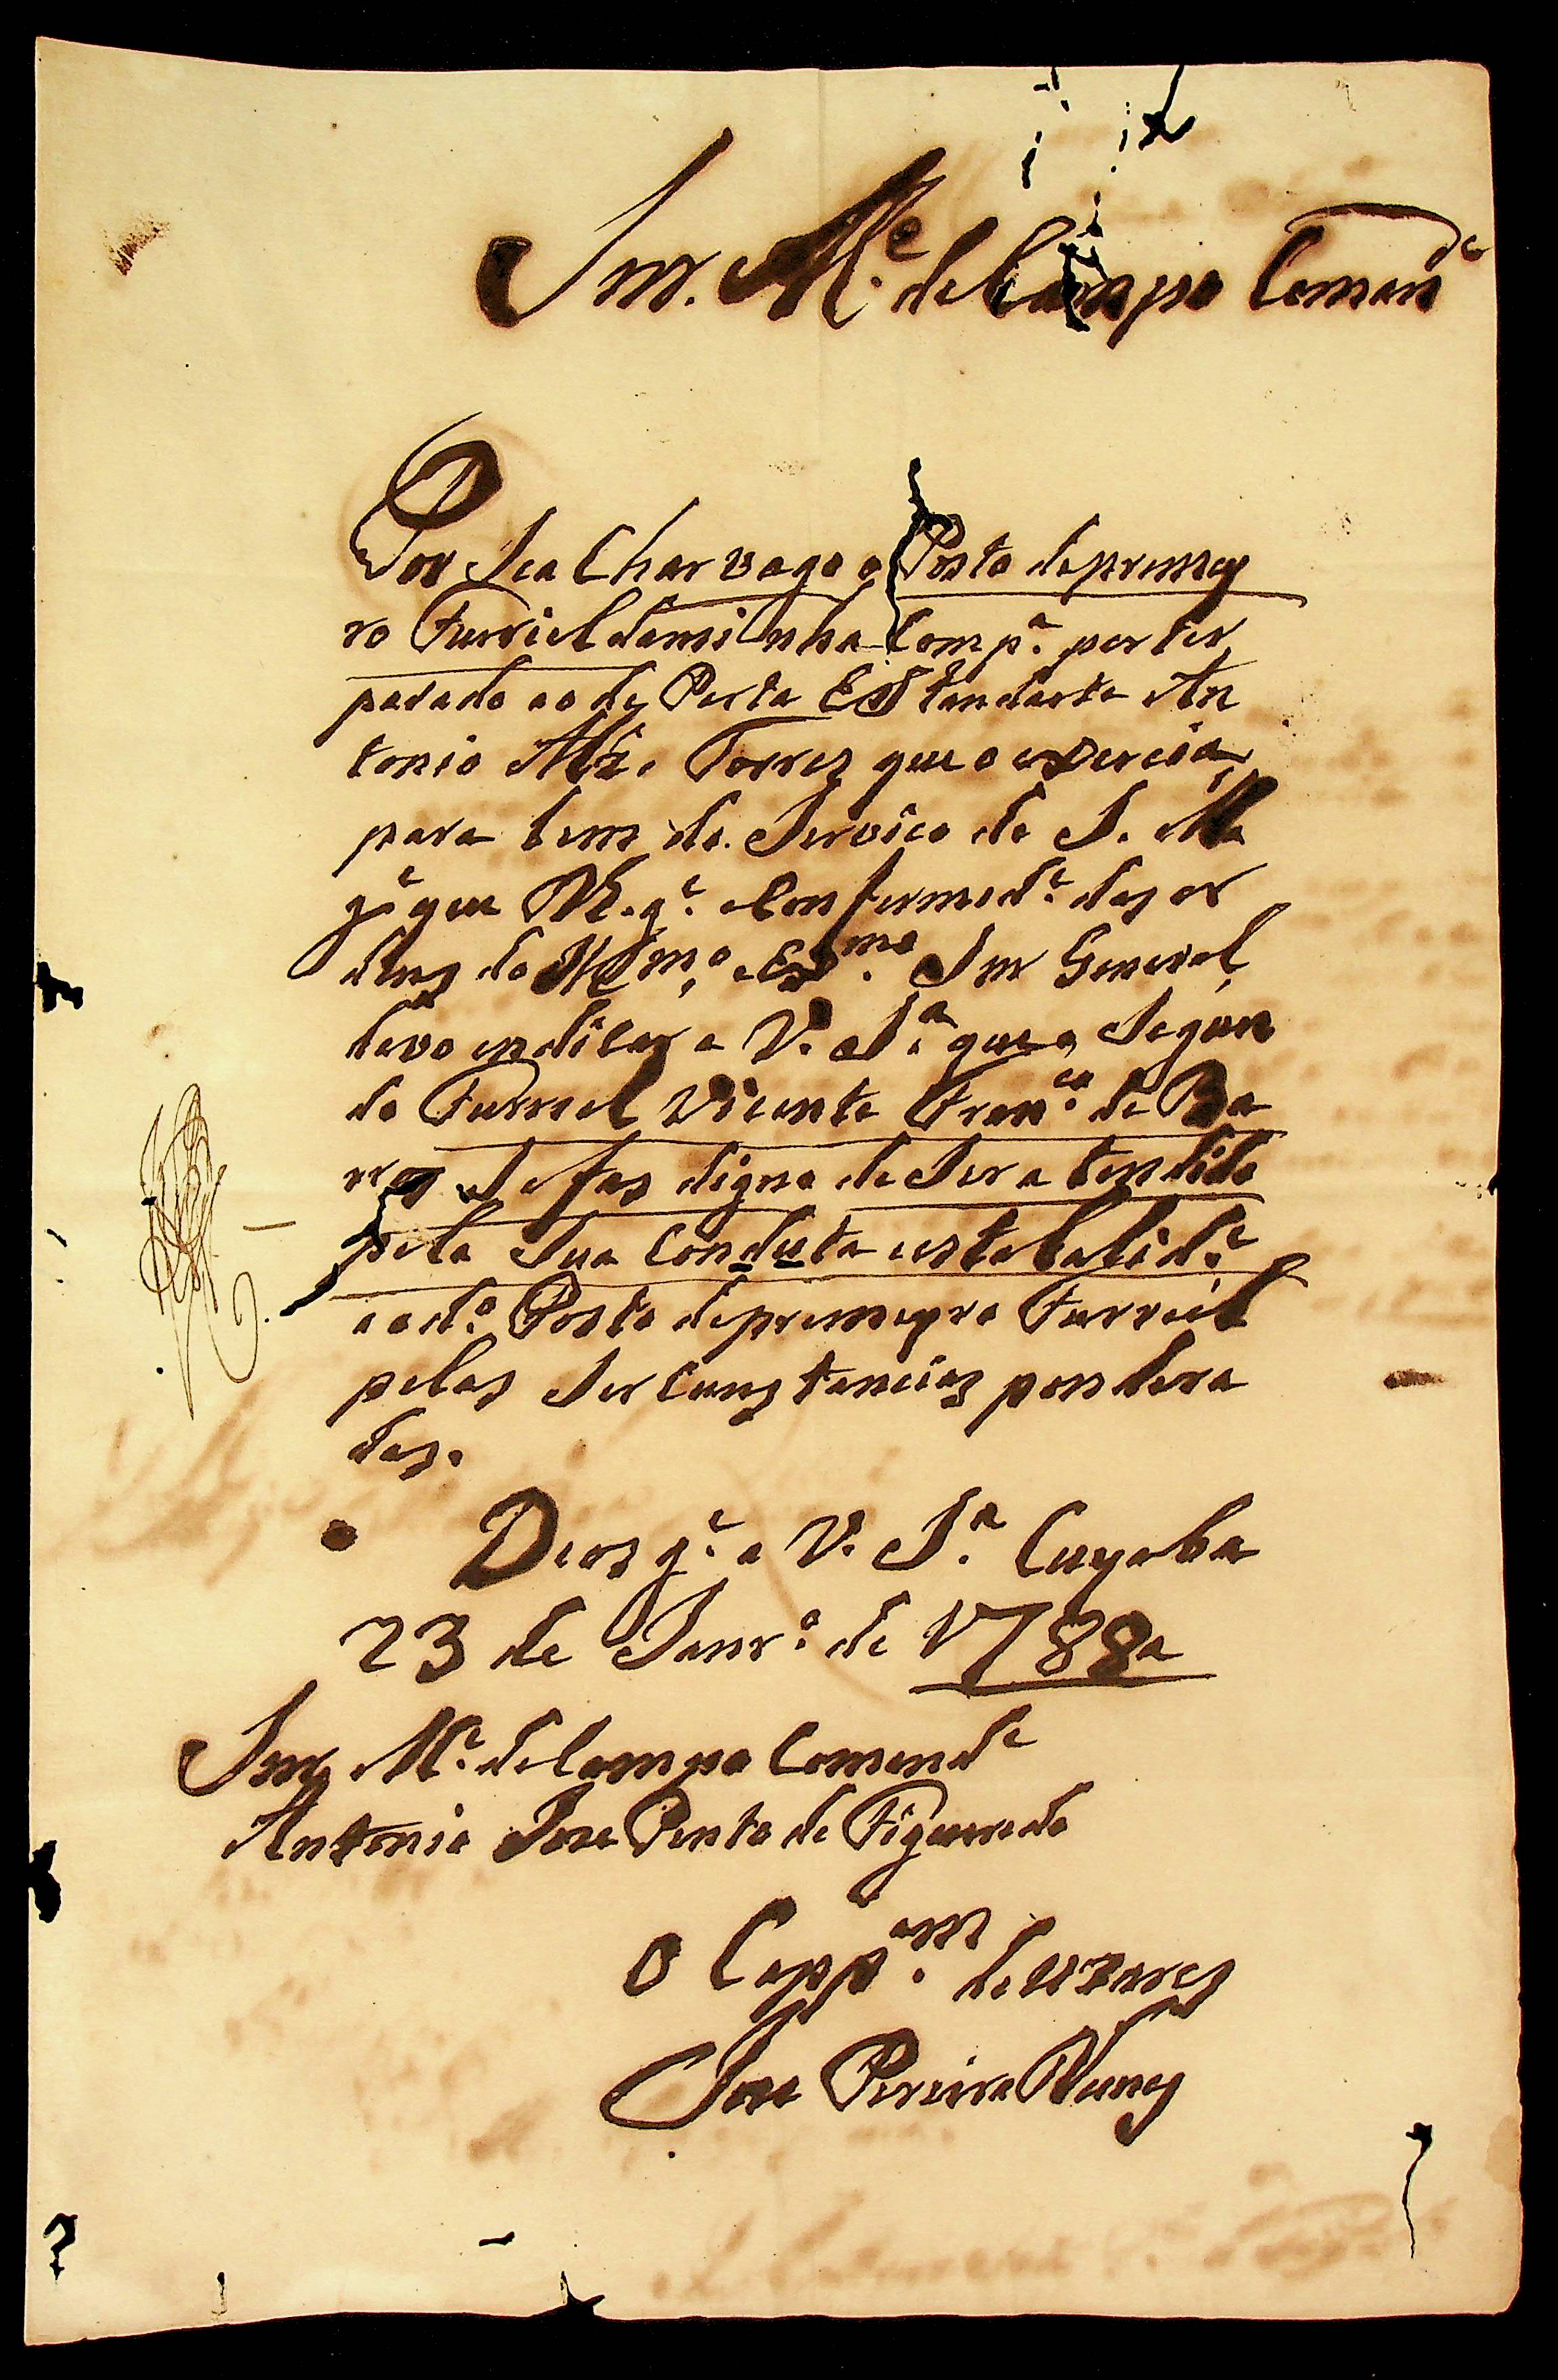 Snr. M.e de Campo Coman.de
Por Sea Char vago o Posto deprimey
ro Furriel daminha Comp.a por ter
pasado ao de Porta EStandarte An
tonio Alz. Torres que o exercia
para bem do Servico de S. Ma
g.e que D.s g.e e Conformid.e das or
dens do Illm.o e Ex.mo Snr General,
devo endicar a V. S.a que o Segun
do Furriel Vicente Fran.co de Ba
rros Sefas digno de Ser a tendido
pela Sua Conduta estabalid.e
aod.o Posto deprimeyro Furriel
pelas Sercunstancias pondera
das.
Deos g.e a V. S.a Cuyaba
23 de Janr.o de 1788a
Snr. M.e de Campo Comand.e
Antonio Joze Pinto de Figueredo
O Capp.am de uzares
Joze Pereira Nunes